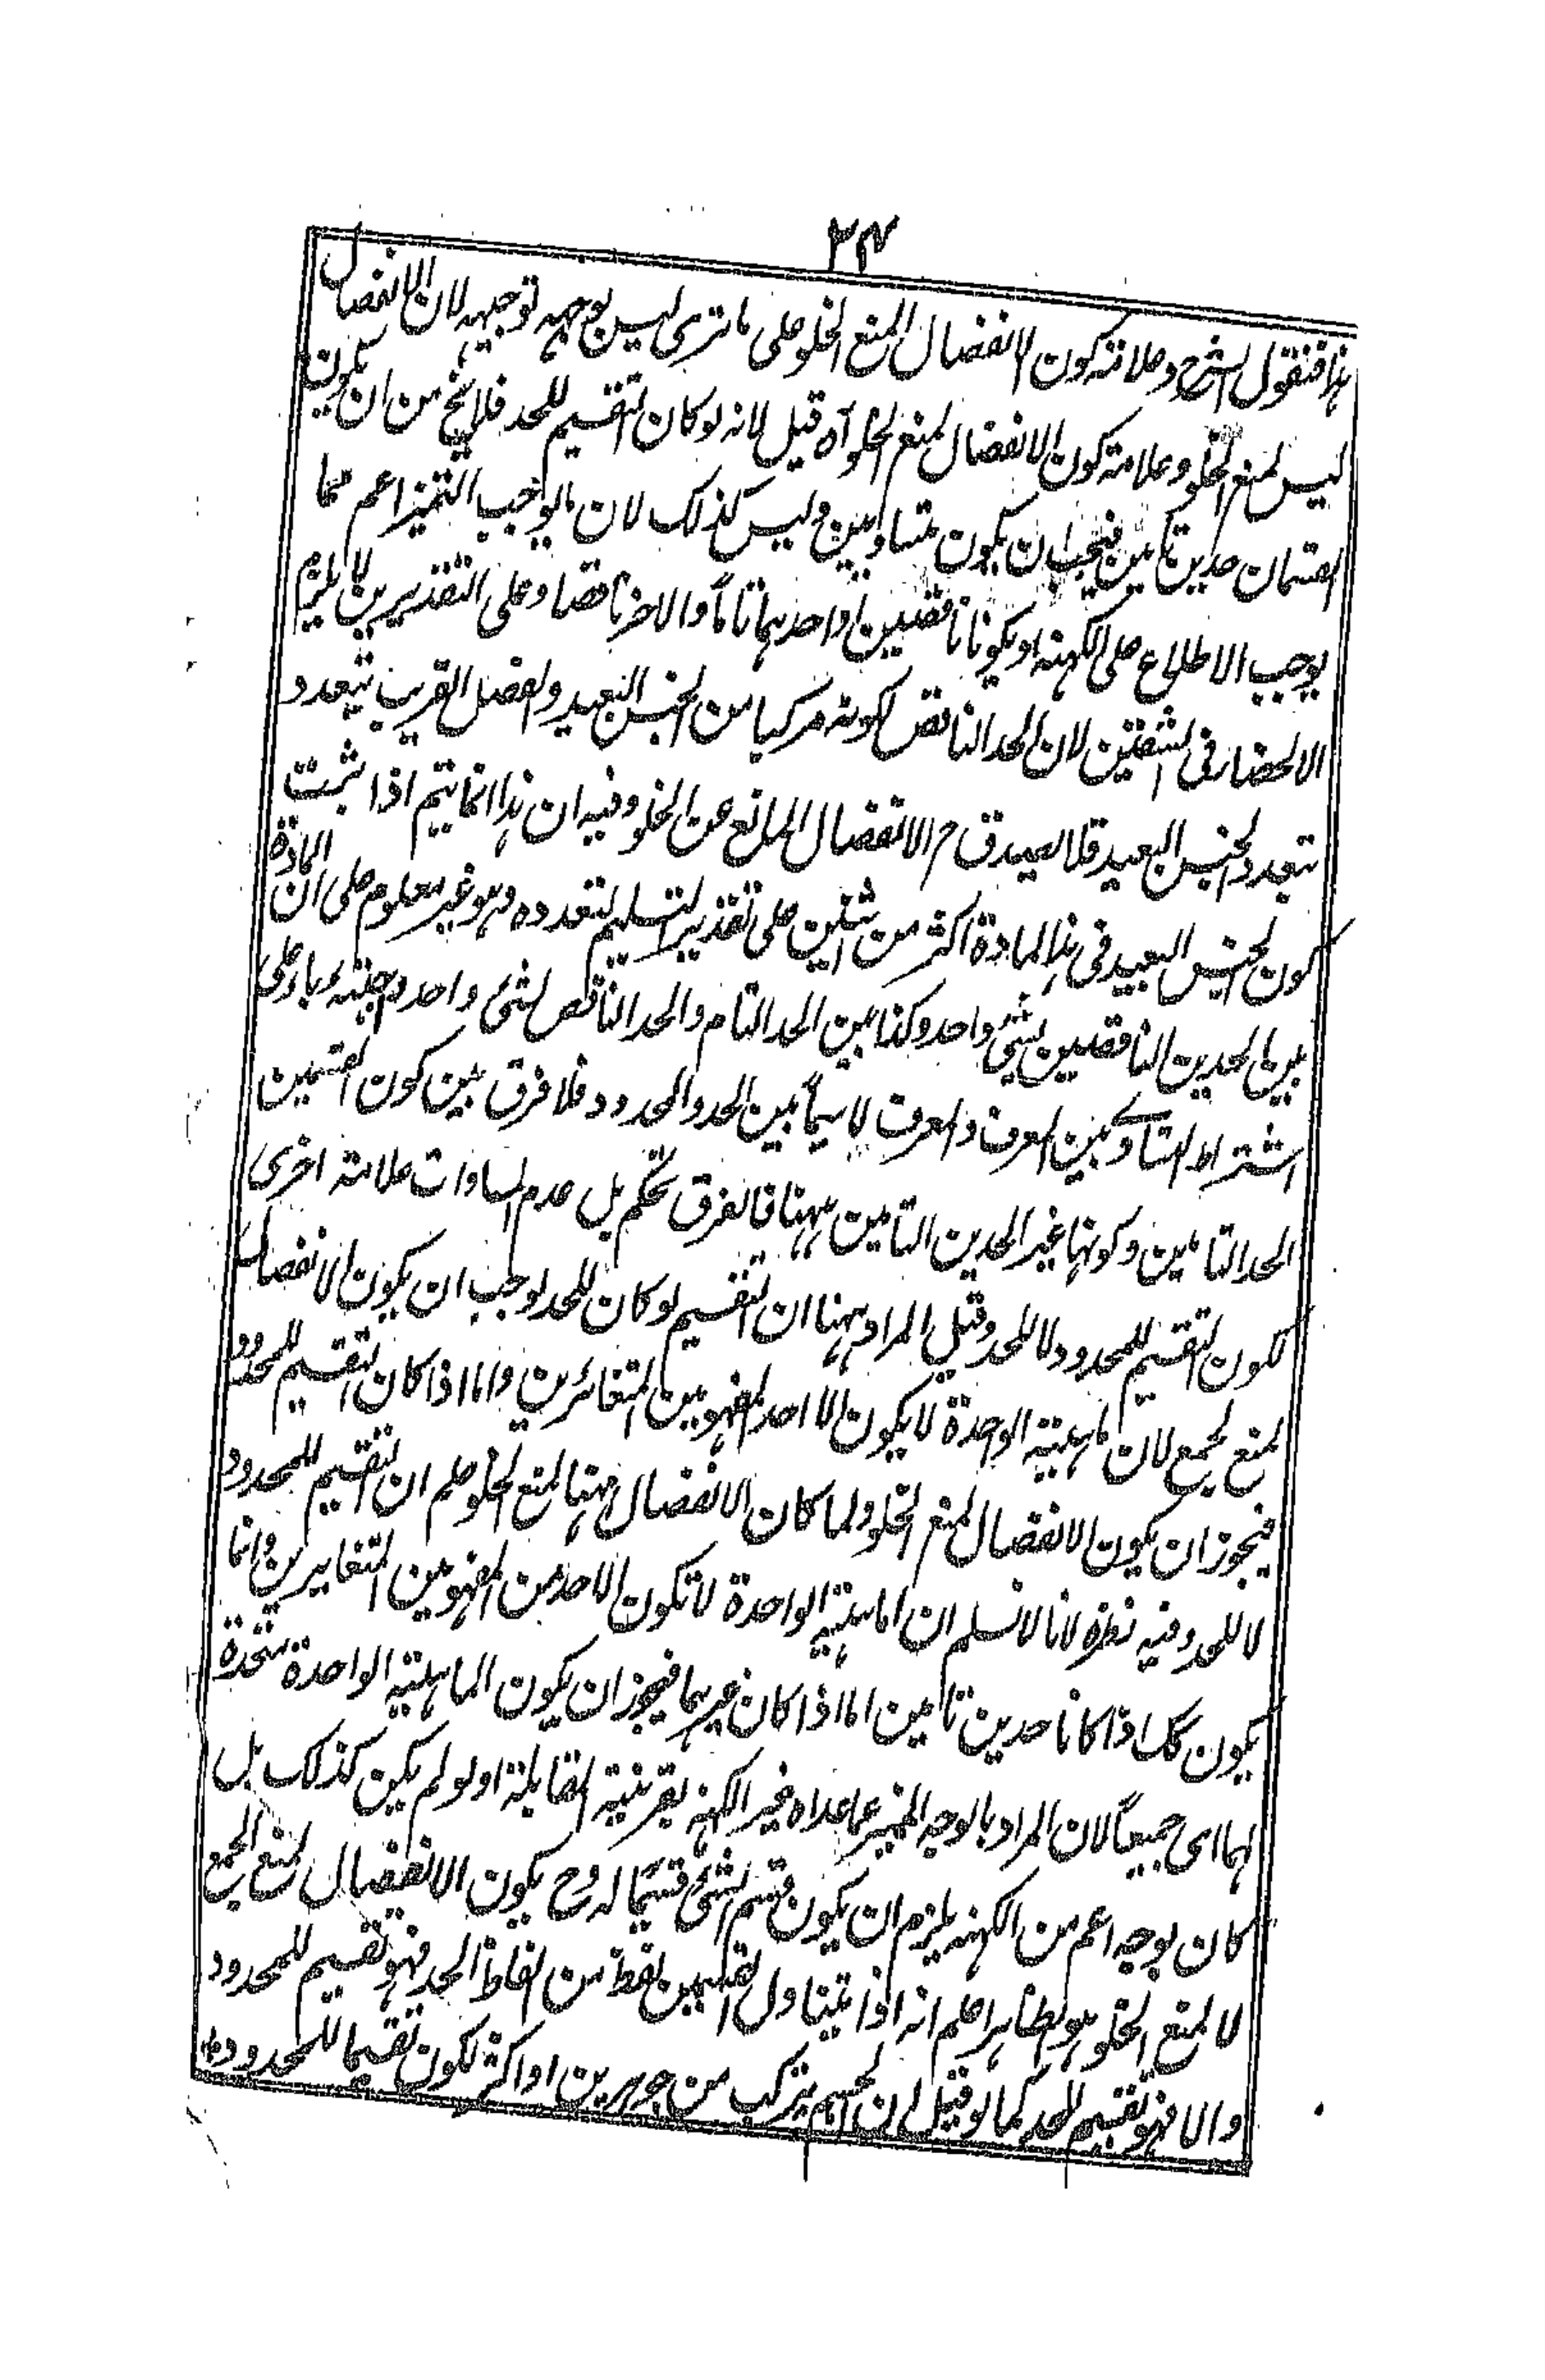 ٣٤
هذا فنقول الشرح وعلامته كون الانفصال لمنع الخلو على ما ترى ليس بوجهه توجيهه لان الانفصال
ليس لمنع الخلو وعلامته كون الانفصال لمنع الخلو آه قيل لانه لو كان التقسيم للحد فلا يخ من ان يكون
القسمان حدين تامين فيجب ان يكون متساويين وليس كذلك لان ما يوجب التميز اعم مما
يوجب الاطلاع على الكهنه او يكونا ناقصين او احدهما تاما والاخر ناقصا وعلى التقديرين لا يلزم
الانحصار فى الشقين لان الحد الناقص لكونه مركبا من الجنس البعيد والفصل القريب يتعدد
بتعدد الجنس البعيد فلا يصدق ح الانفصال المانع عن الخلو وفيه ان هذا انما يتم اذا ثبت
كون الجنس البعيد فى هذا المادة اكثر من اثنين على تقدير التسليم لتعدده وهو غير معلوم على ان المادة
بين الحدين الناقصين لشئ واحد وكذا بين الحد التام والحد الناقص لشئ واحد واجبة بناء على
اشتراط التساوى بين المعرف والمعرف لا سيما بين الحد والمحدود فلا فرق بين كون القسمين
الحد التامين وكونها غير الحدين التامين ههنا فالفرق تحكم بل عدم المساوات علامة اخرى
لكون التقسيم للمحدود لا للحد وقيل المراد ههنا ان التقسيم لو كان للحد لوجب ان يكون الانفصال
لمنع الجمع لان ماهية الواحدة لا يكون الا احد المفهومين المتغائرين واما اذا كان التقسيم للمحدود
فيجوز ان يكون الانفصال لمنع الخلو ولما كان الانفصال ههنا لمنع الخلو علم ان التقسيم للمحدود
لا للحد وفيه نظر لانا لا نسلم ان الماهية الواحدة لا تكون الا احد من المفهومين المتغايرين وانما
يكون كك اذا كانا حدين تامين اما اذا كان غيرهما فيجوز ان يكون الماهية الواحدة متحدة
لهما اى جميعا لان المراد بالوجه المميز عما عداه غير الكهنه بقرينة المقابلة او لو لم يكن كذلك بل
كان بوجه اعم من الكهنه يلزم ان يكون قسم الشئ قسيما له وح يكون الانفصال لمنع الجمع
لا لمنع الخلو وهو الظاهر اعلم انه اذا يتناول القسمين لفظ من الفاظ الحد فهو تقسيم للمحدود
والا فهو تقسيم للحد كما لو قيل ان الجسم يتركب من جوهرين او اكثر لكون تقسيما للمحدود